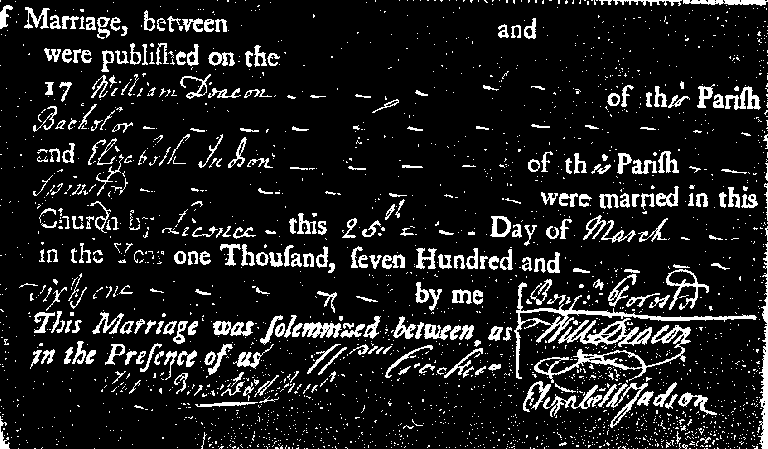 f Marriage, between and
were publiſhed on the
17 William Deacon - - - - - - of this Pariſh
Bachelor - - - - - - - - - - -
and Elizabeth Judson - - - - - of this Pariſh - -
Spinster - - - - - - - were married in this
Church by Licence - this 25th - - Day of March - -
in the Year one Thouſand, ſeven Hundred and - - - -
sixty one - - - - - by me Benjn Forster.
This Marriage was ſolemnized between us Will Deacon
in the Preſence of us Wm Crocker
Elizabeth Judson